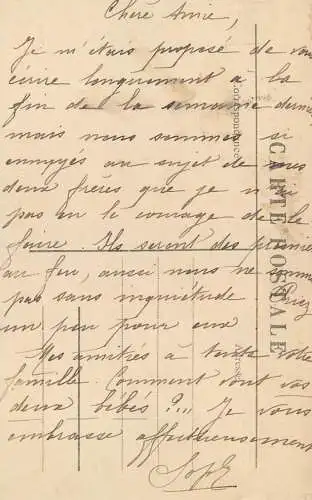 Chère Amie,
Je m'étais proposé de vous
écrire longuement à la
fin de la semaine dernière
mais nous sommes si
ennuyés au sujet de mes
deux frères que je n'ai
pas eu le courage de le
faire. Ils seront des premiers
au feu, aussi nous ne sommes
pas sans inquiétude. Priez
un peu pour eux
Mes amitiés à toute votre
famille. Comment vont vos
deux bébés ?... Je vous
embrasse affectueusement
CARTE POSTALE
Correspondance
Adresse